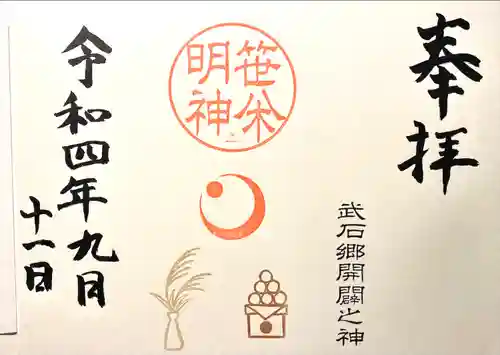 奉拝
武石郷開闢之神
笹焼
明神
令和四年九月
十一日